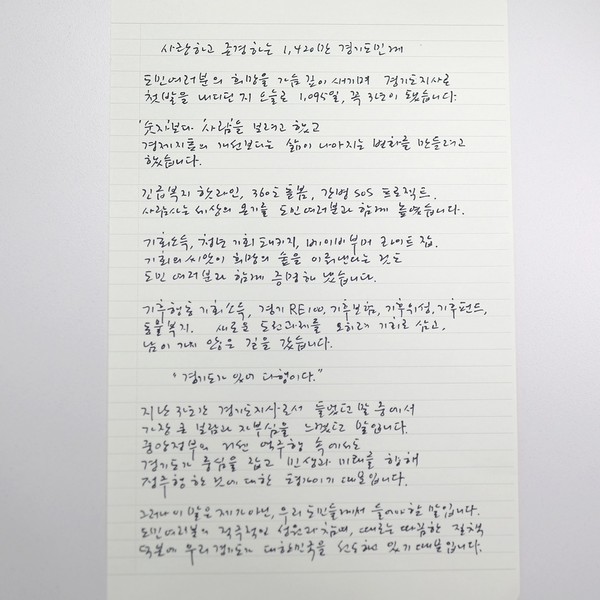 사랑하고 존경하는 1,420만 경기도민께
도민 여러분의 희망을 가슴 깊이 새기며 경기도지사로
첫발을 내디딘 지 오늘로 1,095일, 꼭 3년이 됐습니다.
'숫자'보다 '사람'을 보려고 했고
경제지표의 개선보다는 삶이 나아지는 변화를 만들려고
했습니다.
긴급복지 핫라인, 360도 돌봄, 간병 SOS 프로젝트.
사람 사는 세상의 온기를 도민 여러분과 함께 높였습니다.
기회소득, 청년 기회 패키지, 베이비부머 라이트 잡.
기회의 씨앗이 희망의 숲을 이뤄낸다는 것도
도민 여러분과 함께 증명해 냈습니다.
기후행동 기회소득, 경기 RE100, 기후보험, 기후위성, 기후펀드,
동물복지. 새로운 도전과제를 오히려 기회로 삼고,
남이 가지 않은 길을 갔습니다.
"경기도가 있어 다행이다."
지난 3년간 경기도지사로서 들었던 말 중에서
가장 큰 보람과 자부심을 느꼈던 말입니다.
중앙정부의 거센 역주행 속에서도
경기도가 중심을 잡고 민생과 미래를 향해
정주행 한 것에 대한 평가이기 때문입니다.
그러나 이 말은 제가 아닌, 우리 도민들께서 들어야 할 말입니다.
도민 여러분의 적극적인 성원과 참여, 때로는 따끔한 질책
덕분에 우리 경기도가 대한민국을 선도하고 있기 때문입니다.